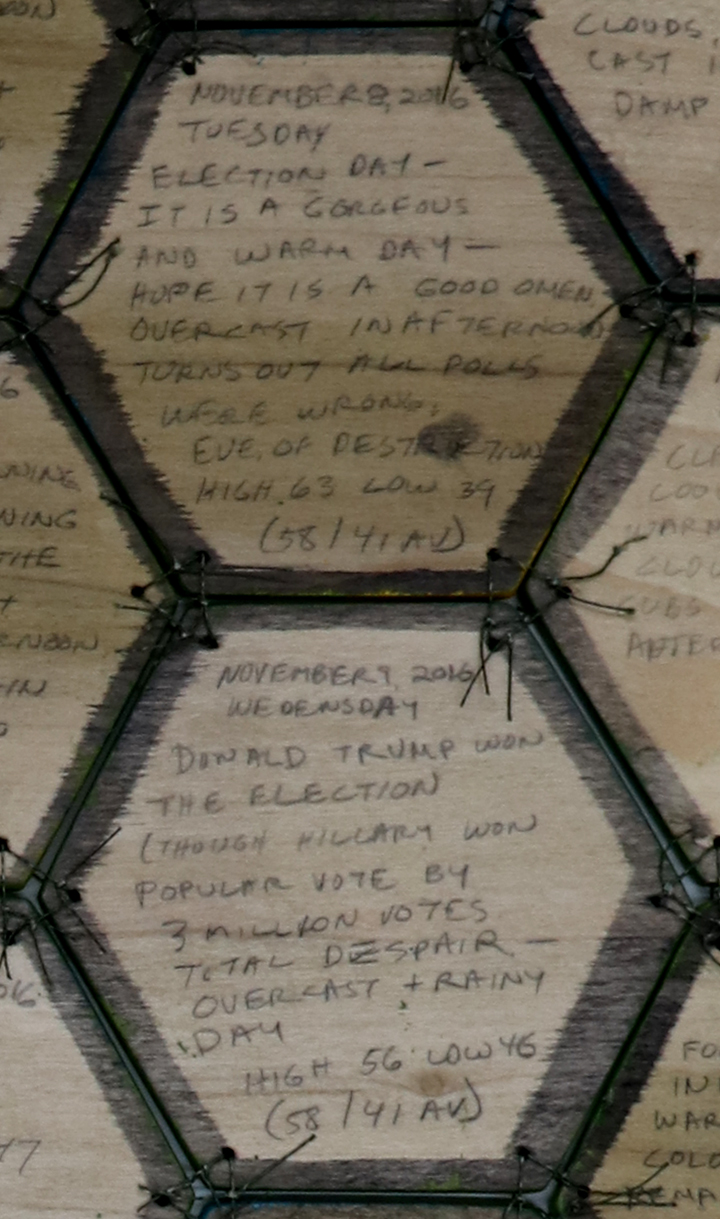 NOVEMBER 8, 2016
TUESDAY
ELECTION DAY —
IT IS A GORGEOUS
AND WARM DAY —
HOPE IT IS A GOOD OMEN
OVERCAST IN AFTERNOON
TURNS OUT ALL POLLS
WERE WRONG.
EVE OF DESTRUCTION
HIGH 63 LOW 39
(58/41 AV)
NOVEMBER 9, 2016
WEDENSDAY
DONALD TRUMP WON
THE ELECTION
(THOUGH HILLARY WON
POPULAR VOTE BY
3 MILLION VOTES
TOTAL DESPAIR —
OVERCAST + RAINY
DAY
HIGH 56 LOW 46
(58/41 AV)
CLOUDS,
CAST
DAMP